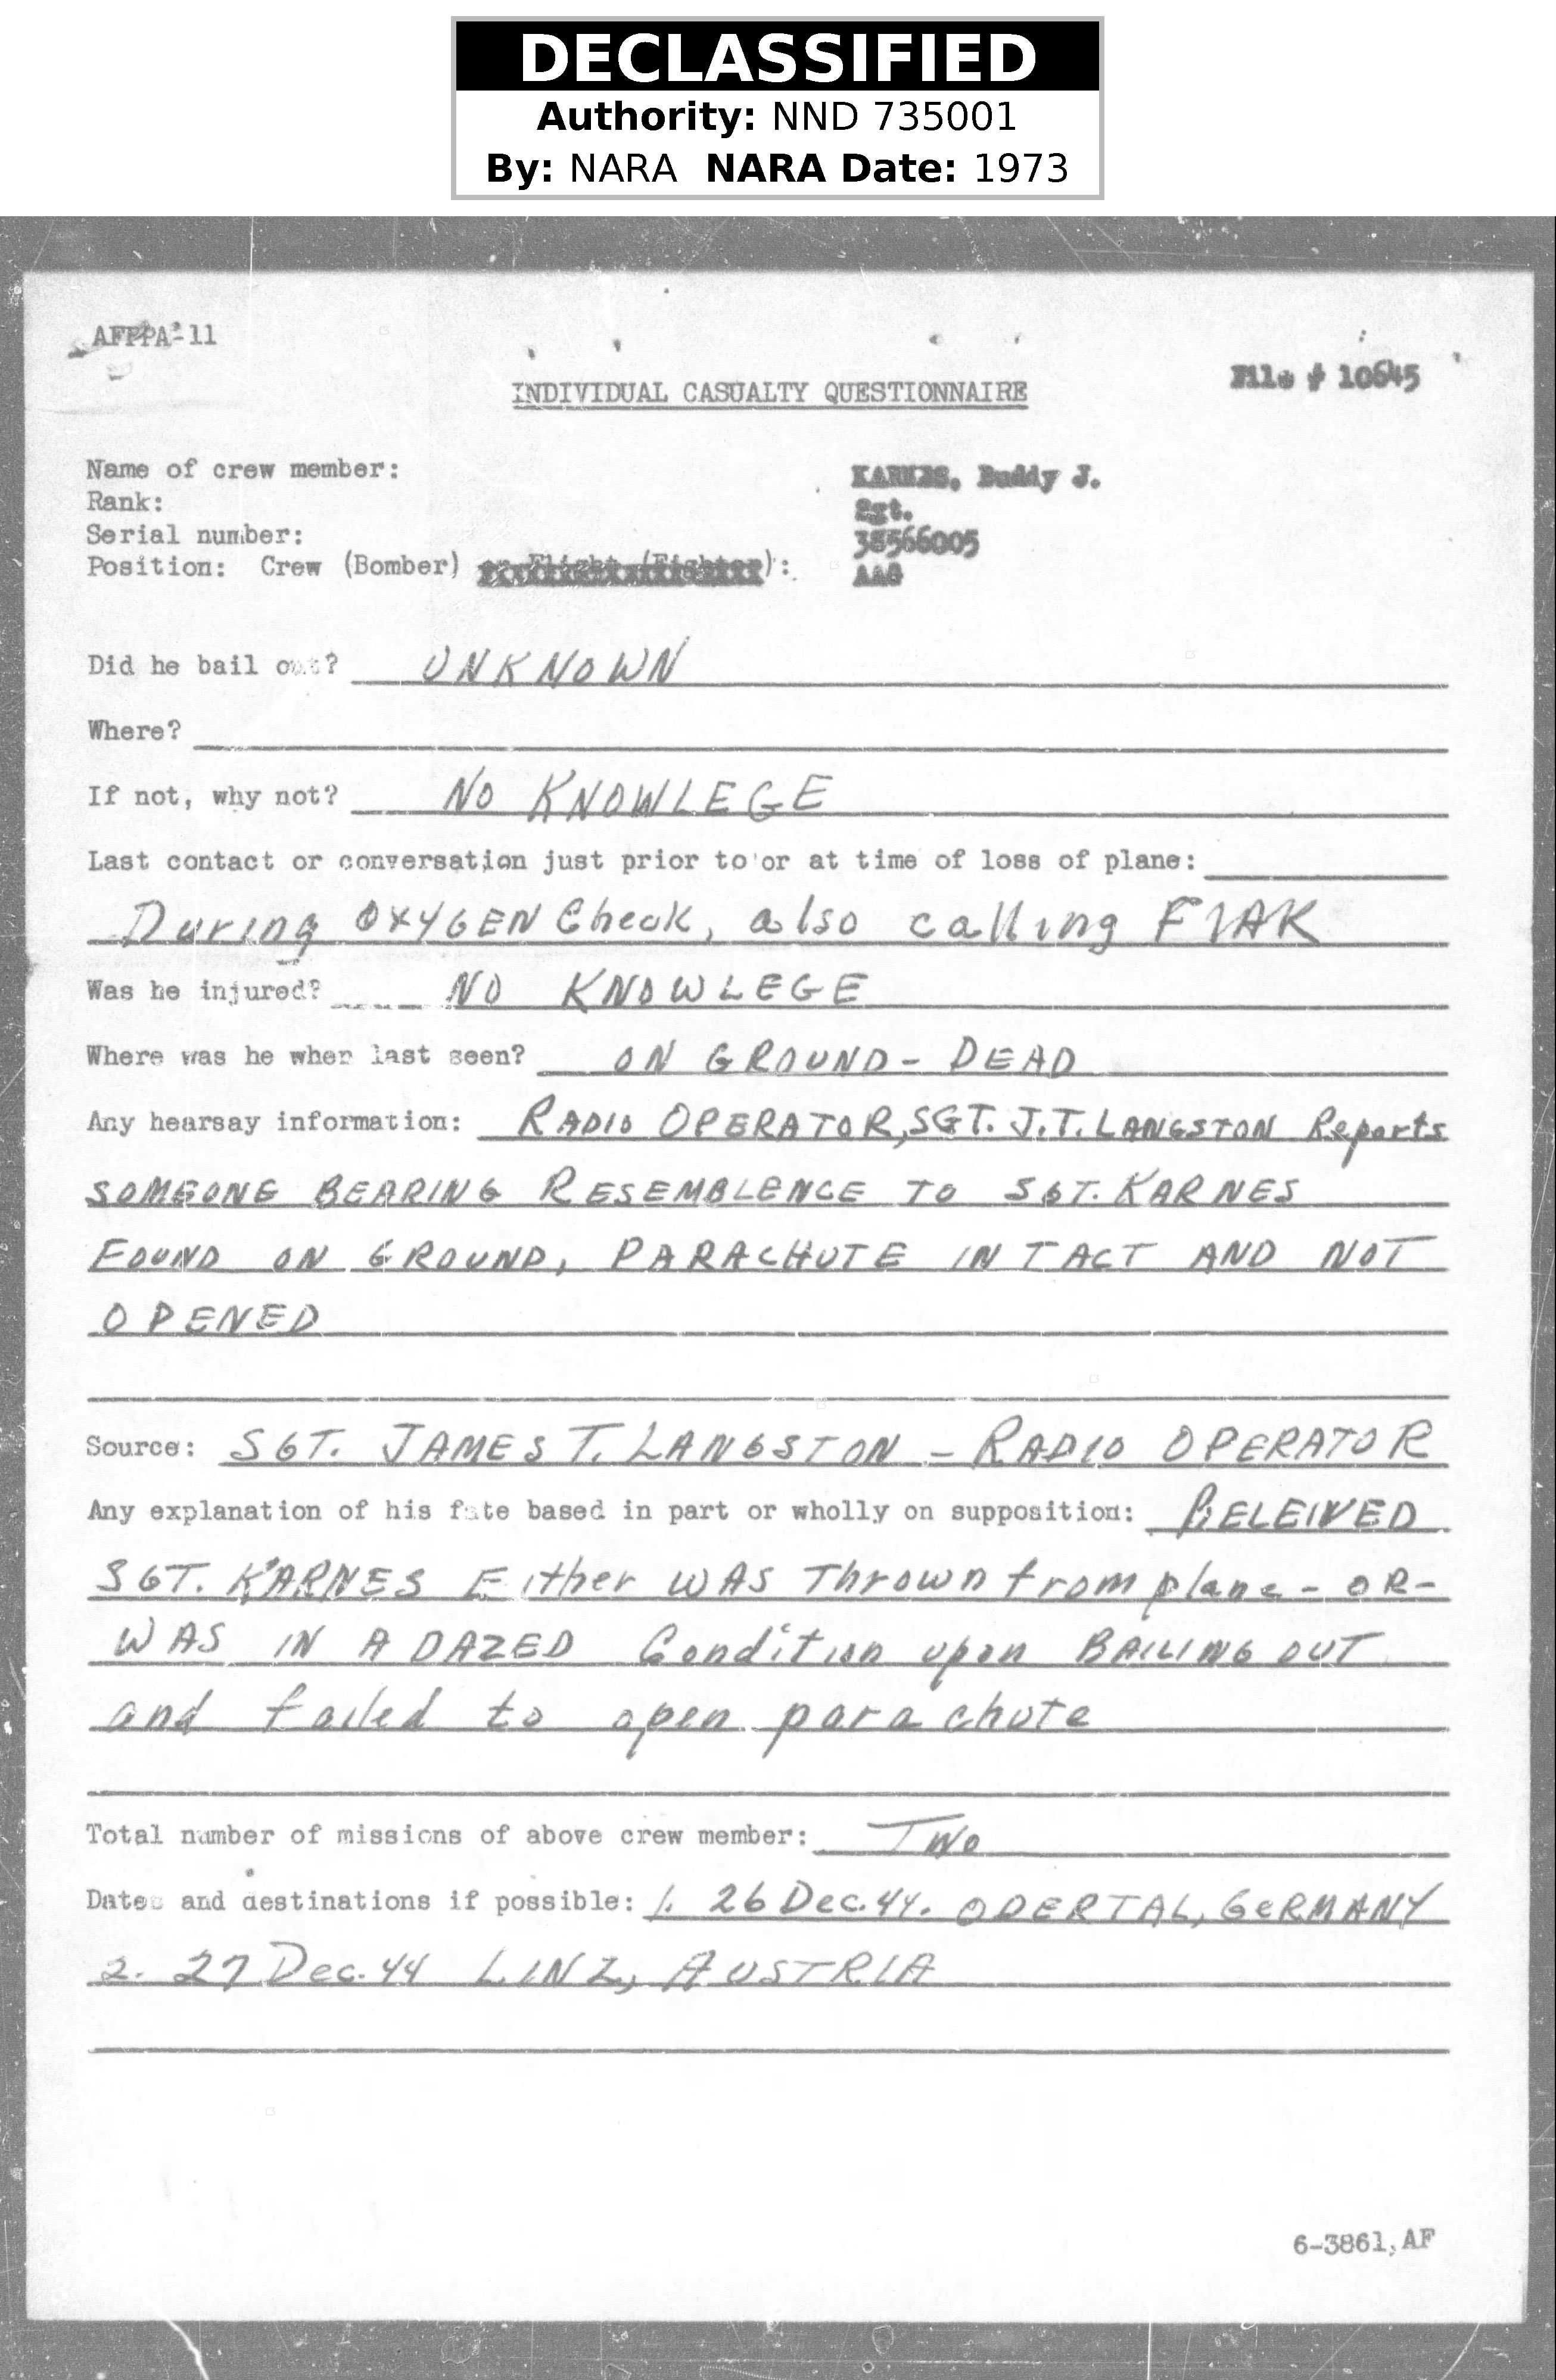 DECLASSIFIED
Authority: NND 735001
By: NARA NARA Date: 1973
AFPPA-11
File # 10645
INDIVIDUAL CASUALTY QUESTIONNAIRE
Name of crew member: KARNES, Buddy J.
Rank: Sgt.
Serial number: 38566005
Position: Crew (Bomber) or Flight (Fighter): AAG
Did he bail out? UNKNOWN
Where?
If not, why not? NO KNOWLEGE
Last contact or conversation just prior to or at time of loss of plane:
During OXYGEN Check, also calling FlAK
Was he injured? NO KNOWLEGE
Where was he when last seen? ON GROUND - DEAD
Any hearsay information: RADIO OPERATOR, SGT. J.T. LANGSTON Reports
SOMEONE BEARING RESEMBLENCE TO SGT. KARNES
FOUND ON GROUND, PARACHUTE INTACT AND NOT
OPENED
Source: SGT. JAMES T. LANGSTON - RADIO OPERATOR
Any explanation of his fate based in part or wholly on supposition: BELEIVED
SGT. KARNES Either WAS Thrown from plane - OR -
WAS IN A DAZED Condition upon BAILING OUT
and failed to open parachute
Total number of missions of above crew member: Two
Dates and destinations if possible: 1. 26 Dec. 44. ODERTAL, GERMANY
2. 27 Dec. 44 LINZ, AUSTRIA
6-3861, AF